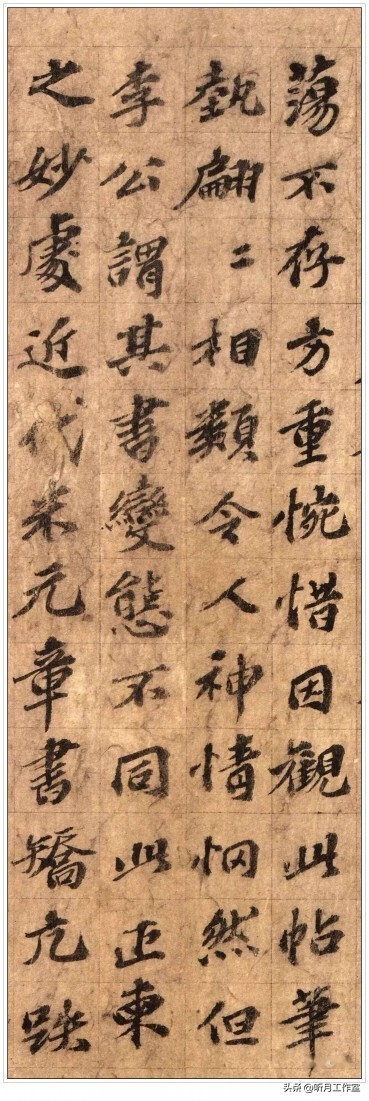 蕩不存方重惋惜因觀此帖筆
埶翩〻相類令人神情惘然但
李公謂其書變態不同此正東
之妙處近代米元章書矯亢跌
头条 @听月工作室